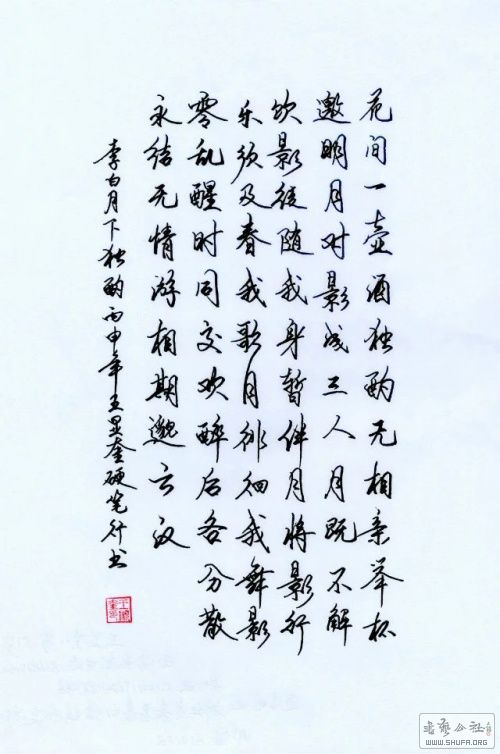 花间一壶酒独酌无相亲举杯
邀明月对影成三人月既不解
饮影徒随我身暂伴月将影行
乐须及春我歌月徘徊我舞影
零乱醒时同交欢醉后各分散
永结无情游相期邈云汉
李白月下独酌丙申年王显奎硬笔行书
书艺公社
WWW.SHUFA.ORG